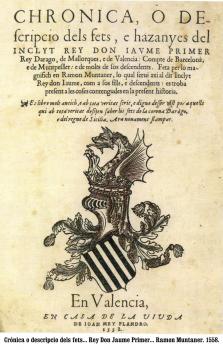 CHRONICA, O DE
scripcio dels fets, e hazanyes del
INCLYT REY DON IAVME PRIMER
Rey Darago, de Mallorques, e de Valencia: Compte de Barcelona,
e de Muntpesller: e de molts de sos descendents. Feta per lo ma
gnifich en Ramon Muntaner, lo qual serui axi al dit Inclyt
Rey don Iaume, com a sos fills, e descendents: es troba
present a les coses contengudes en la present historia.
Es libre molt antich, e ab tota veritat scrit, e digne de esser vist per aquells
qui ab tota veritat desijen saber los fets de la corona Darago,
e del regne de Sicilia. Ara nouament stampat.
En Valencia,
EN CASA DE LA VIUDA
DE IOAN MEY FLANDRO.
1558.
Crónica o descripcio dels fets... Rey Don Jaume Primer... Ramon Muntaner. 1558.